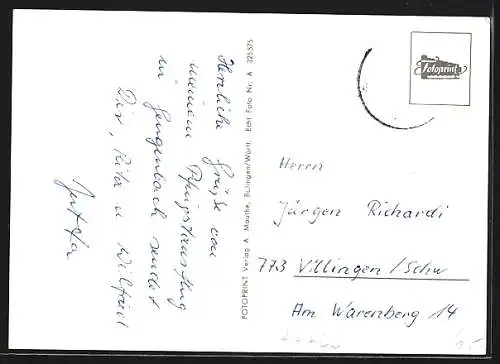 Herzliche Grüße von
meinem Pfingstausflug
in Gengenbach sendet
Dir, Rita u Wilfried
Jutta
FOTOPRINT Verlag A. Mauthe, Balingen/Württ. Echt Foto Nr. A 325575
Fotoprint
Herrn
Jürgen Richardi
773 Villingen/Schw
Am Warenberg 14